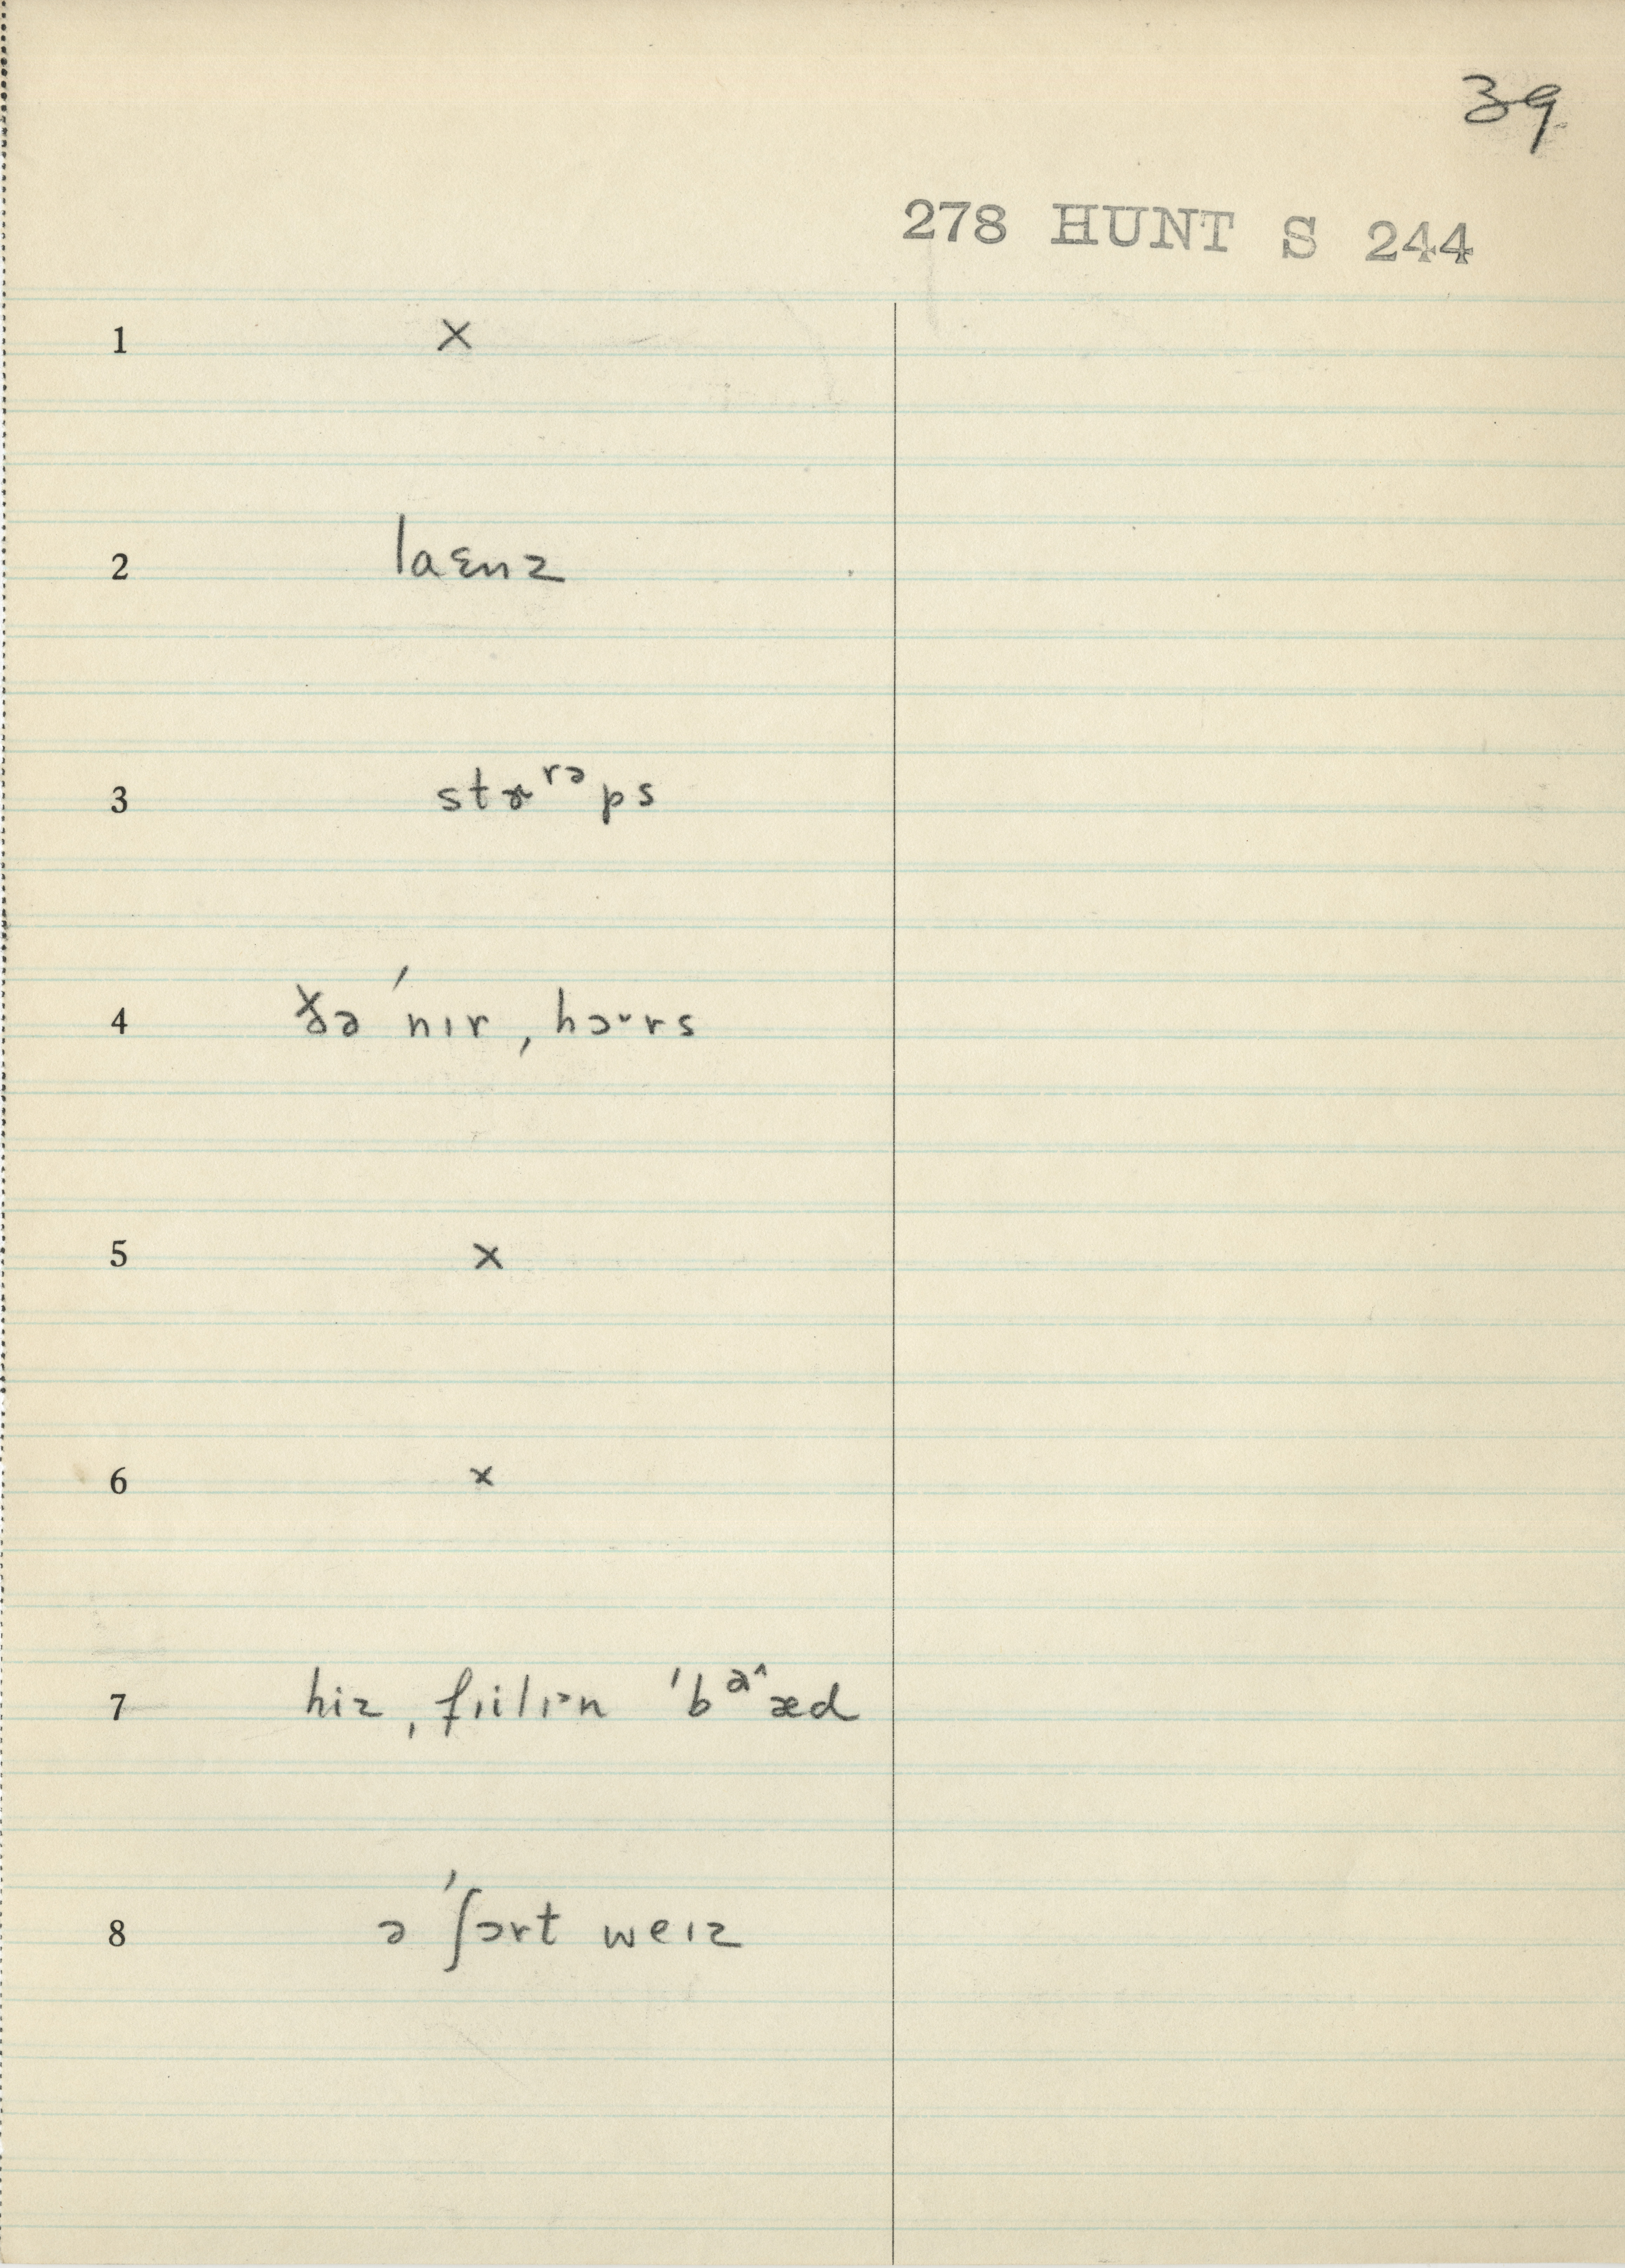 39
278 HUNT S 244
1 ×
2 laɛnz
3 stɚʳᵊps
4 ðə ˈnɪr ˌhɔ˞rs
5 ×
6 ×
7 hiz ˌfɪilɪᵊn ˈbᵊ^æd
8 ə ˈʃɔrt weɪz